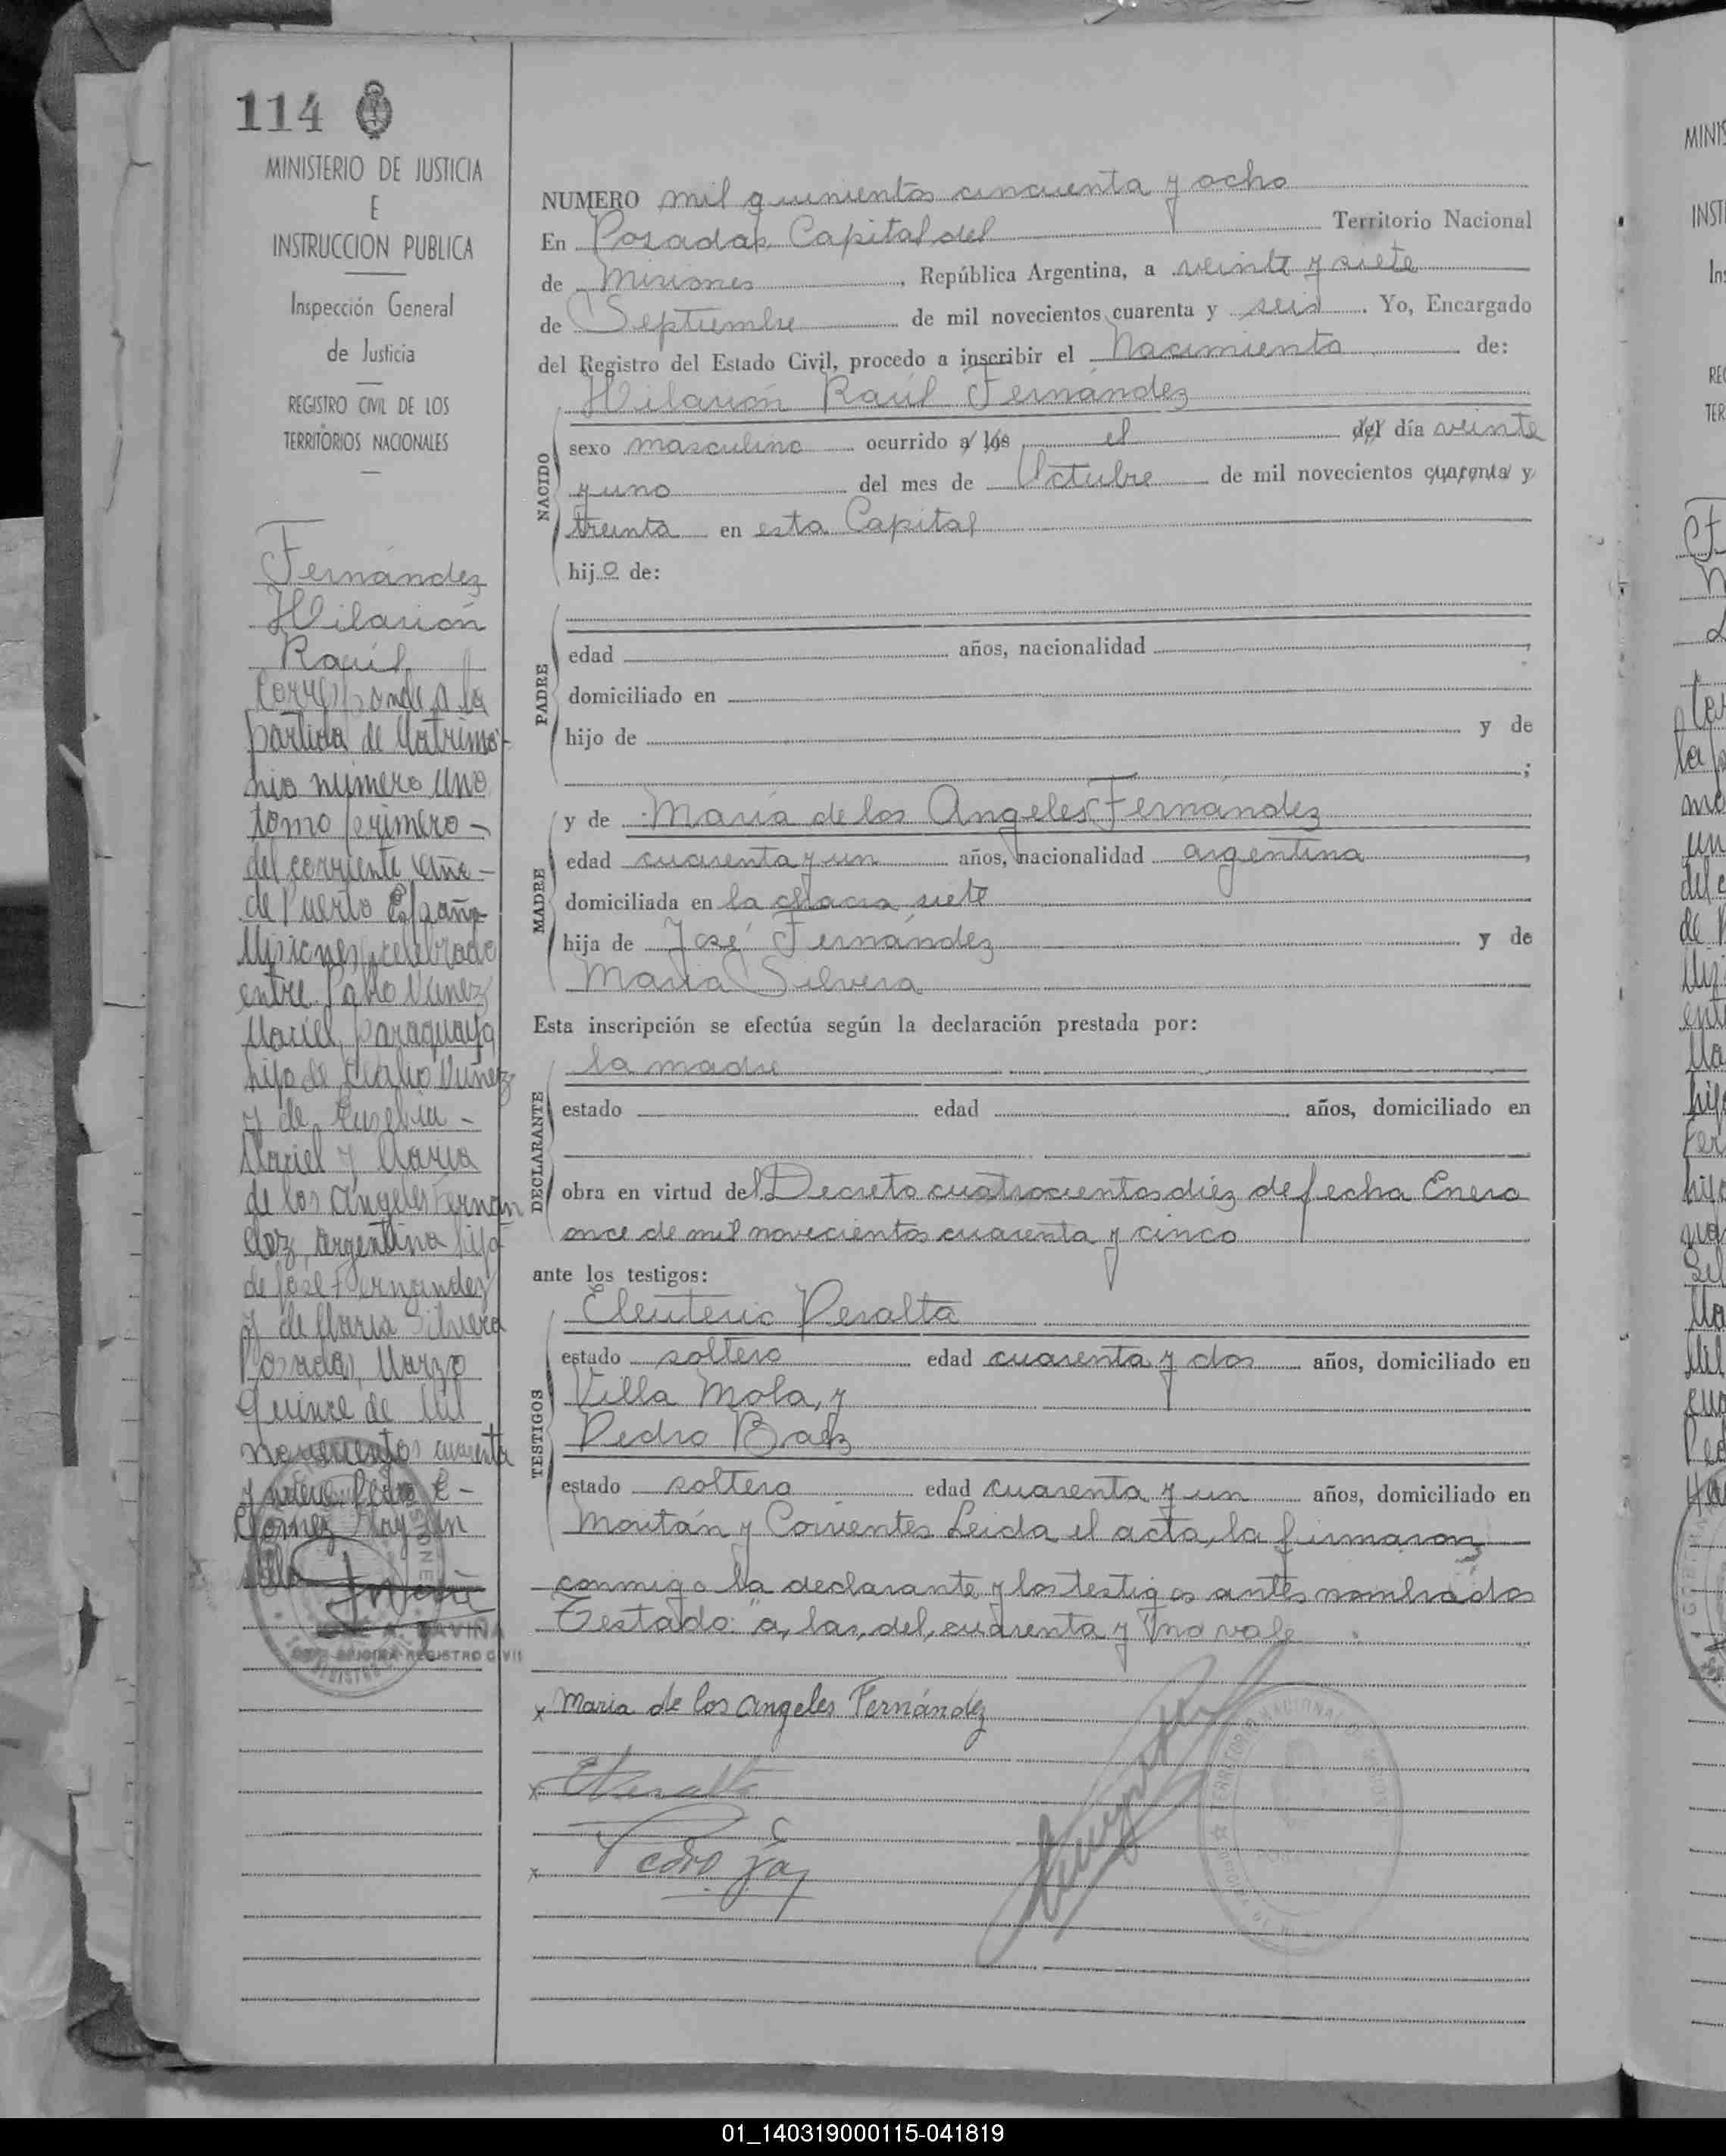 114
MINISTERIO DE JUSTICIA
E
INSTRUCCION PUBLICA
Inspección General
de Justicia
REGISTRO CIVIL DE LOS
TERRITORIOS NACIONALES
Fernández
Hilarión
Raúl
Corresponde a la
partida de Matrimo-
nio número uno
tomo primero -
del corriente año -
de Puerto España
Misiones, celebrado
entre Pablo Nuñez
Maciel, paraguayo
hijo de Nuñez
y de Eusebia -
Maciel y María
de los Angeles Fernan
dez, argentina hija
de José Fernandez
y de María Silvera
Posadas, Marzo
quince de Mil
novecientos cuarenta
y nueve. Pedro E -
Gomez
NUMERO mil quinientos cincuenta y ocho
En Posadas, Capital del Territorio Nacional
de Misiones, República Argentina, a veinte y siete
de Septiembre de mil novecientos cuarenta y seis. Yo, Encargado
del Registro del Estado Civil, procedo a inscribir el Nacimiento de:
Hilarión Raúl Fernández
NACIDO
sexo masculino ocurrido a las el del día veinte
y uno del mes de Octubre de mil novecientos cuarenta y
treinta en esta Capital
hijo de:
PADRE
edad años, nacionalidad ,
domiciliado en
hijo de y de
;
MADRE
y de María de los Angeles Fernández
edad cuarenta y un años, nacionalidad argentina,
domiciliada en la chacra siete
hija de José Fernández y de
María Silvera
Esta inscripción se efectúa según la declaración prestada por:
DECLARANTE
la madre
estado edad años, domiciliado en
obra en virtud del Decreto cuatrocientos diéz de fecha Enero
once de mil novecientos cuarenta y cinco
ante los testigos:
TESTIGOS
Eleuterio Peralta
estado soltero edad cuarenta y dos años, domiciliado en
Villa Mola, y
Pedro Baez
estado soltero edad cuarenta y un años, domiciliado en
Moritán y Corrientes Leida el acta, la firmaron
conmigo la declarante y los testigos antes nombrados
Testado: "a, las, del, cuarenta y" no vale
x Maria de los angeles Fernández
x EPeralta
x Pedro
01_140319000115-041819